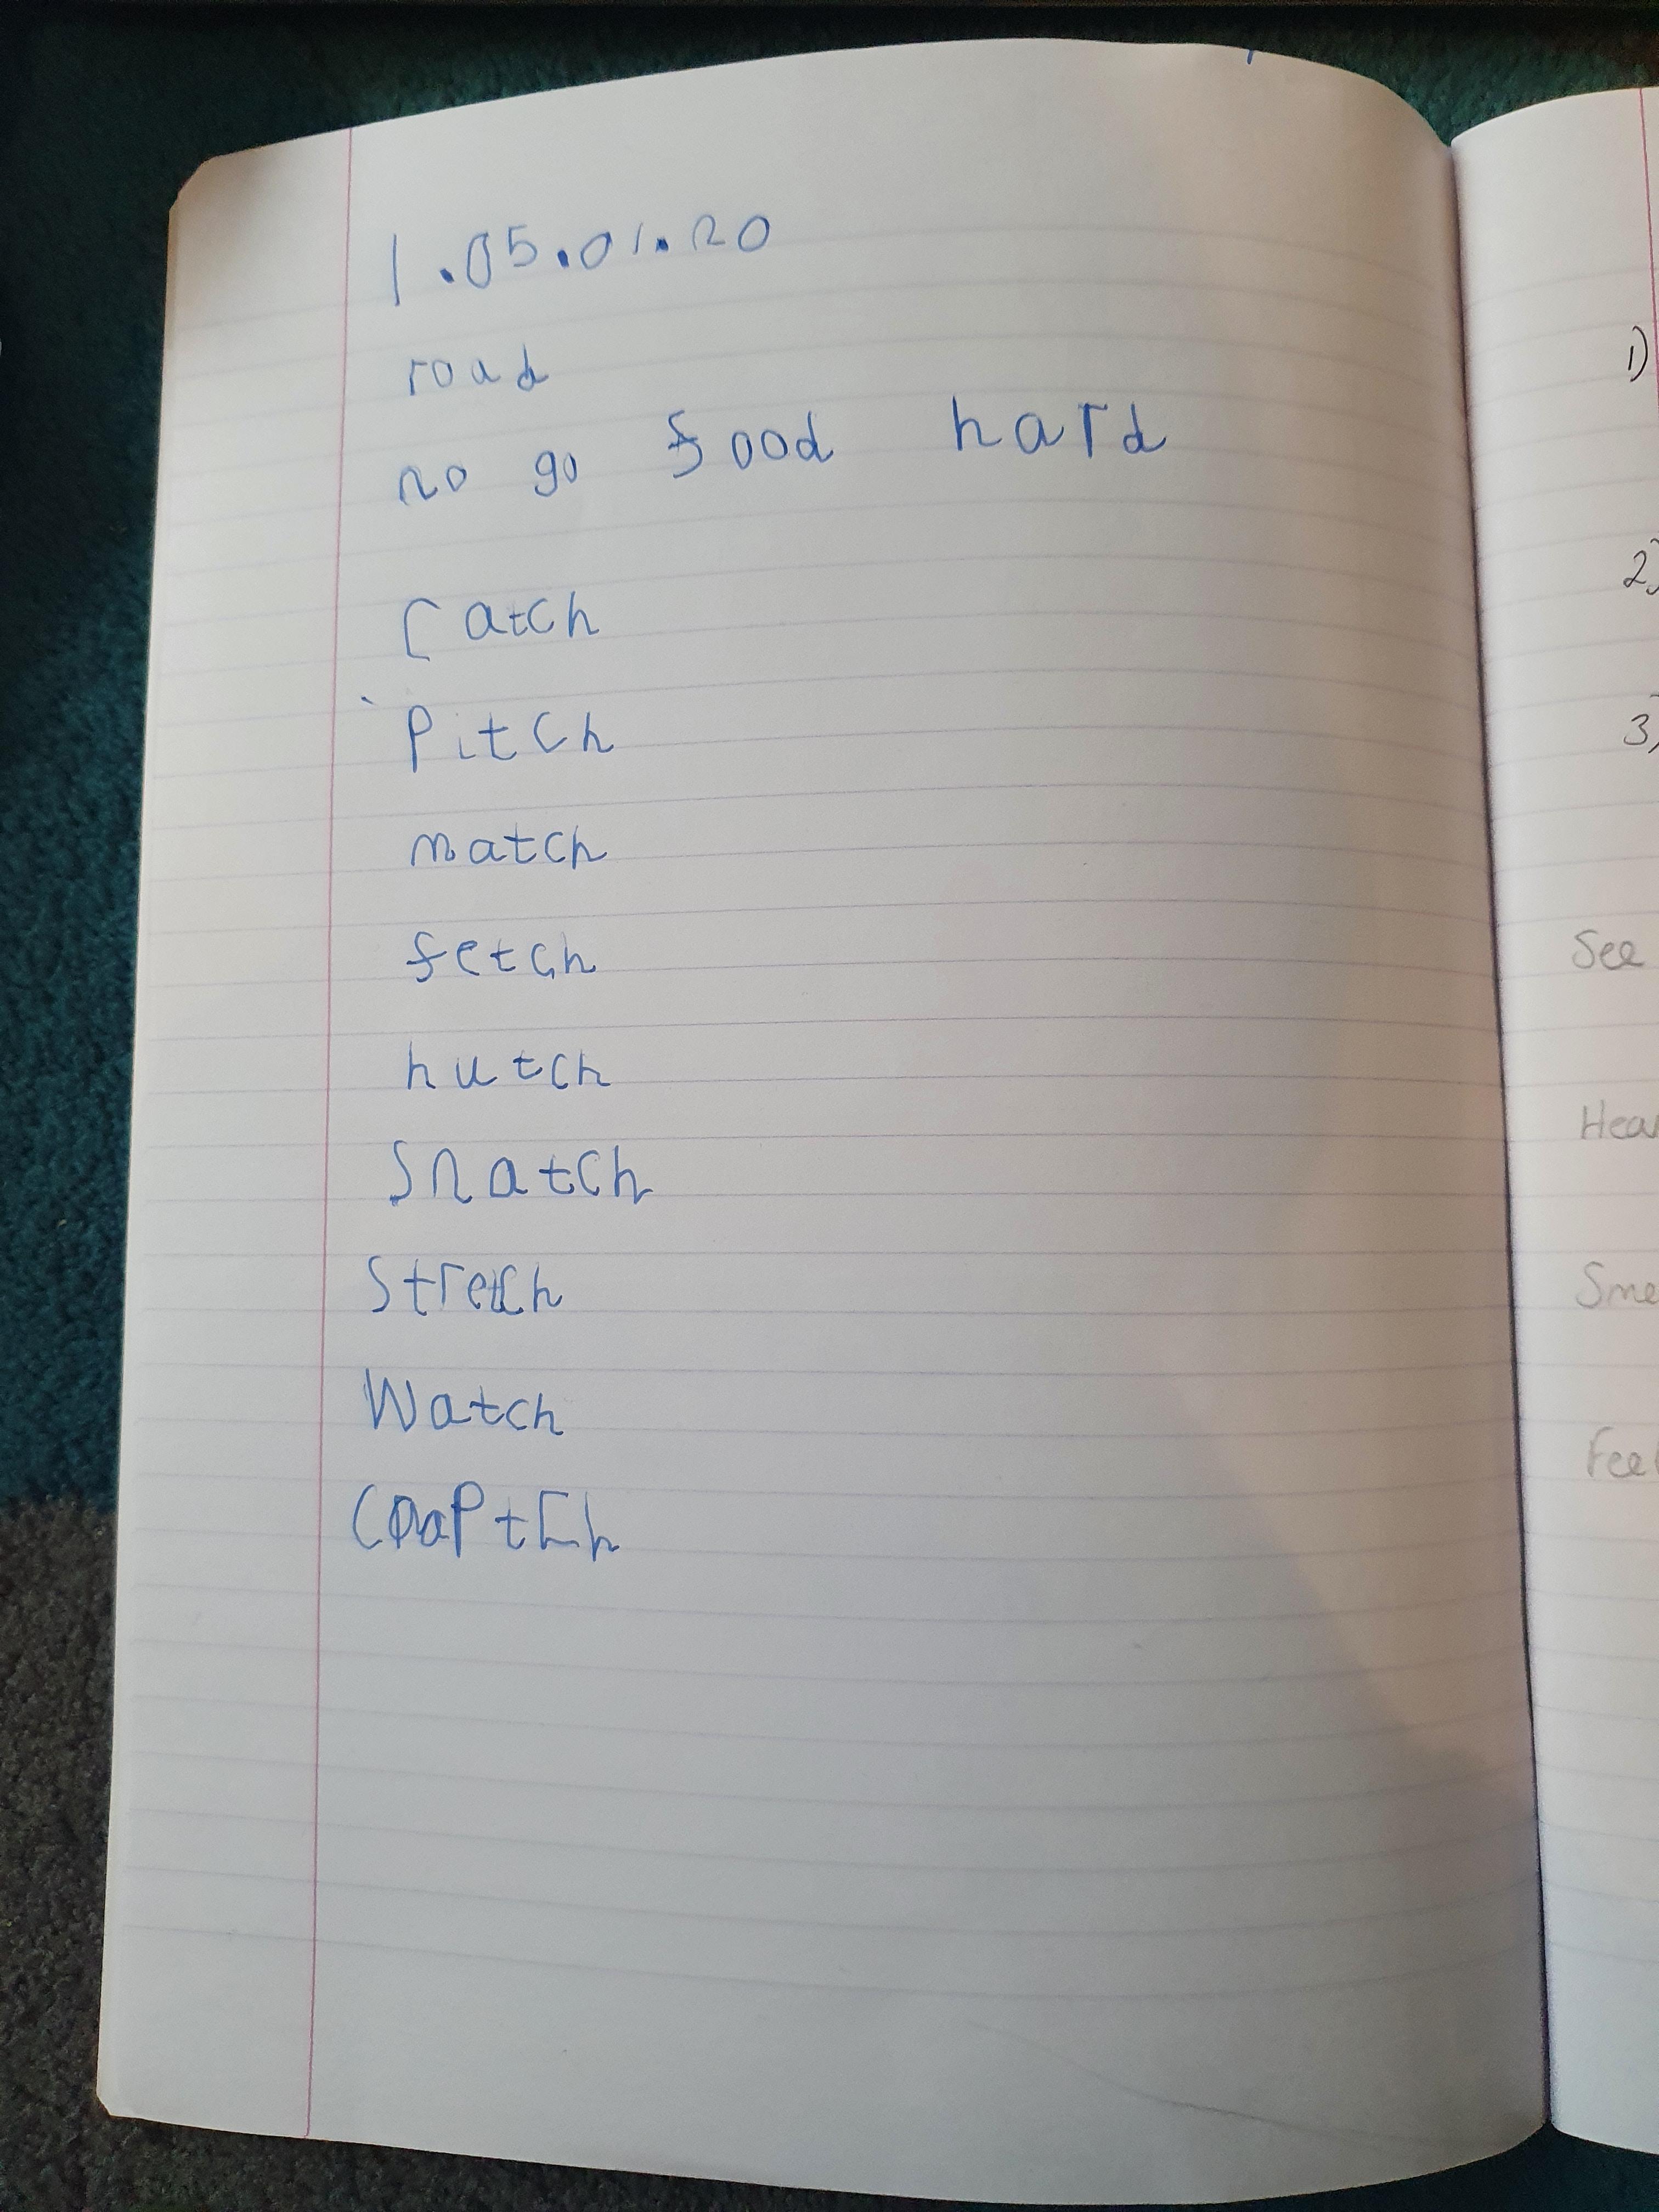 1.05.01.20
road
no go food hard
catch
Pitch
match
fetch
hutch
Snatch
Stretch
Watch
1)
2)
3)
See
Feel